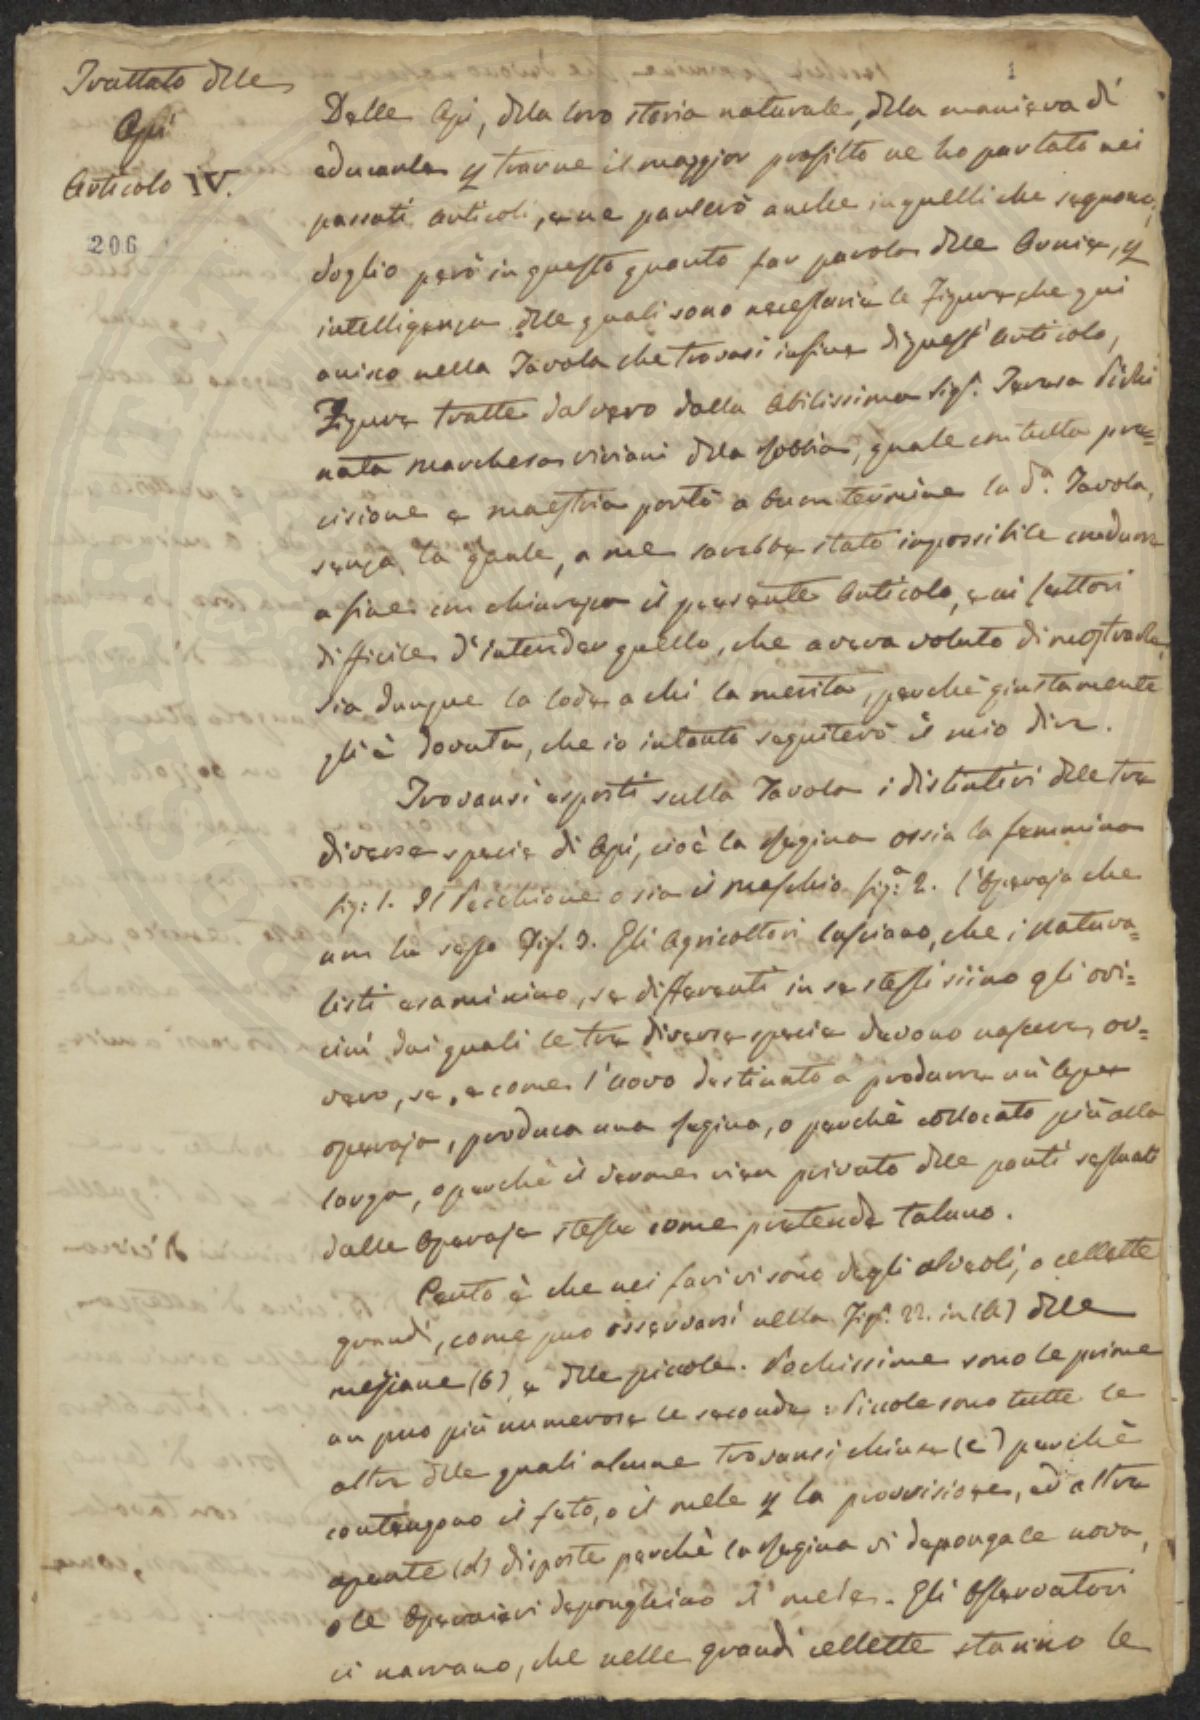 Trattato delle
Api
Articolo IV.
206
1
Delle Api, della loro storia naturale, della maniera di
educarle, e trarne il maggior profitto ne ho parlato nei
passati articoli, e ne parlerò anche in quelli che seguono,
Voglio però in questo quanto far parola delle Arnie, p
intelligenza delle quali sono necessarie le Figure che qui
unisco nella Tavola che trovasi infine di quest'articolo,
Figure tratte dal vero dalla Abilissima Sigra. Teresa Pichi
nata Marchesa Viviani della Robbia, quale con tutta pre=
cisione e maestria portò a buon termine la da. Tavola,
senza la quale, a me sarebbe stato impossibile condurre
a fine con chiarezza il presente Articolo, e ai lettori
difficile d'intender quello, che aveva voluto dimostrarle,
sia dunque la lode a chi la merita, perchè giustamente
gli è dovuta, che io intanto seguiterò il mio dire.
Trovansi esposti sulla Tavola i distintivi delle tre
diverse specie di Api, cioè la Regina ossia la femmina
fig: 1. Il Pecchione o sia il Maschio figa: 2. l'Operaja che
non ha sesso Fig. 3. Gli Agricoltori lasciano, che i Natura=
listi esaminino, se differenti in se stessi siino gli ovi=
cini dai quali le tre diverse specie devono nascere, ov=
vero, se, e come l'uovo destinato a produrre un'Ape
operaja, produca una Regina, o perchè collocato più alla
larga, o perchè il verme vien privato delle parti sessuali
dalle Operaje stesse come pretende taluno.
Certo è che nei favi vi sono degli alveoli, o cellette
grandi, come può osservarsi nella Figa. 22. in (a) delle
mezzane (b) e delle piccole. Pochissime sono le prime
un può più numerose le seconde: Piccole sono tutte le
altre delle quali alcune trovansi chiuse (c) perchè
contengono il feto, o il mele p la provvisione, ed altre
aperte (d) disposte perchè la Regina vi deponga le uova,
o le Operaie vi deponghino il mele. Gli Osservatori
ci narrano, che nelle grandi cellette stanno le